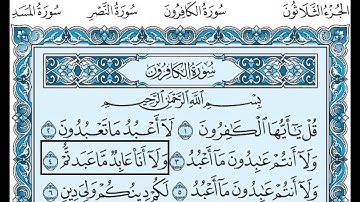 الجُزْءُ الثَّلَاثُونَ سُورَةُ الكَافِرُونَ سُورَةُ النَّصْرِ سُورَةُ المَسَدِ
سُورَةُ الكَافِرُونَ
بِسْمِ اللَّهِ الرَّحْمَٰنِ الرَّحِيمِ
قُلْ يَٰٓأَيُّهَا ٱلْكَٰفِرُونَ ١ لَآ أَعْبُدُ مَا تَعْبُدُونَ ٢
وَلَآ أَنتُمْ عَٰبِدُونَ مَآ أَعْبُدُ ٣ وَلَآ أَنَا۠ عَابِدٌ مَّا عَبَدتُّمْ ٤
وَلَآ أَنتُمْ عَٰبِدُونَ مَآ أَعْبُدُ ٥ لَكُمْ دِينُكُمْ وَلِىَ دِينِ ٦